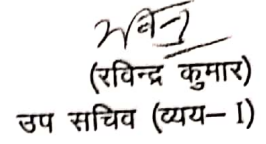 (रविन्द्र कुमार)
उप सचिव (व्यय– I)